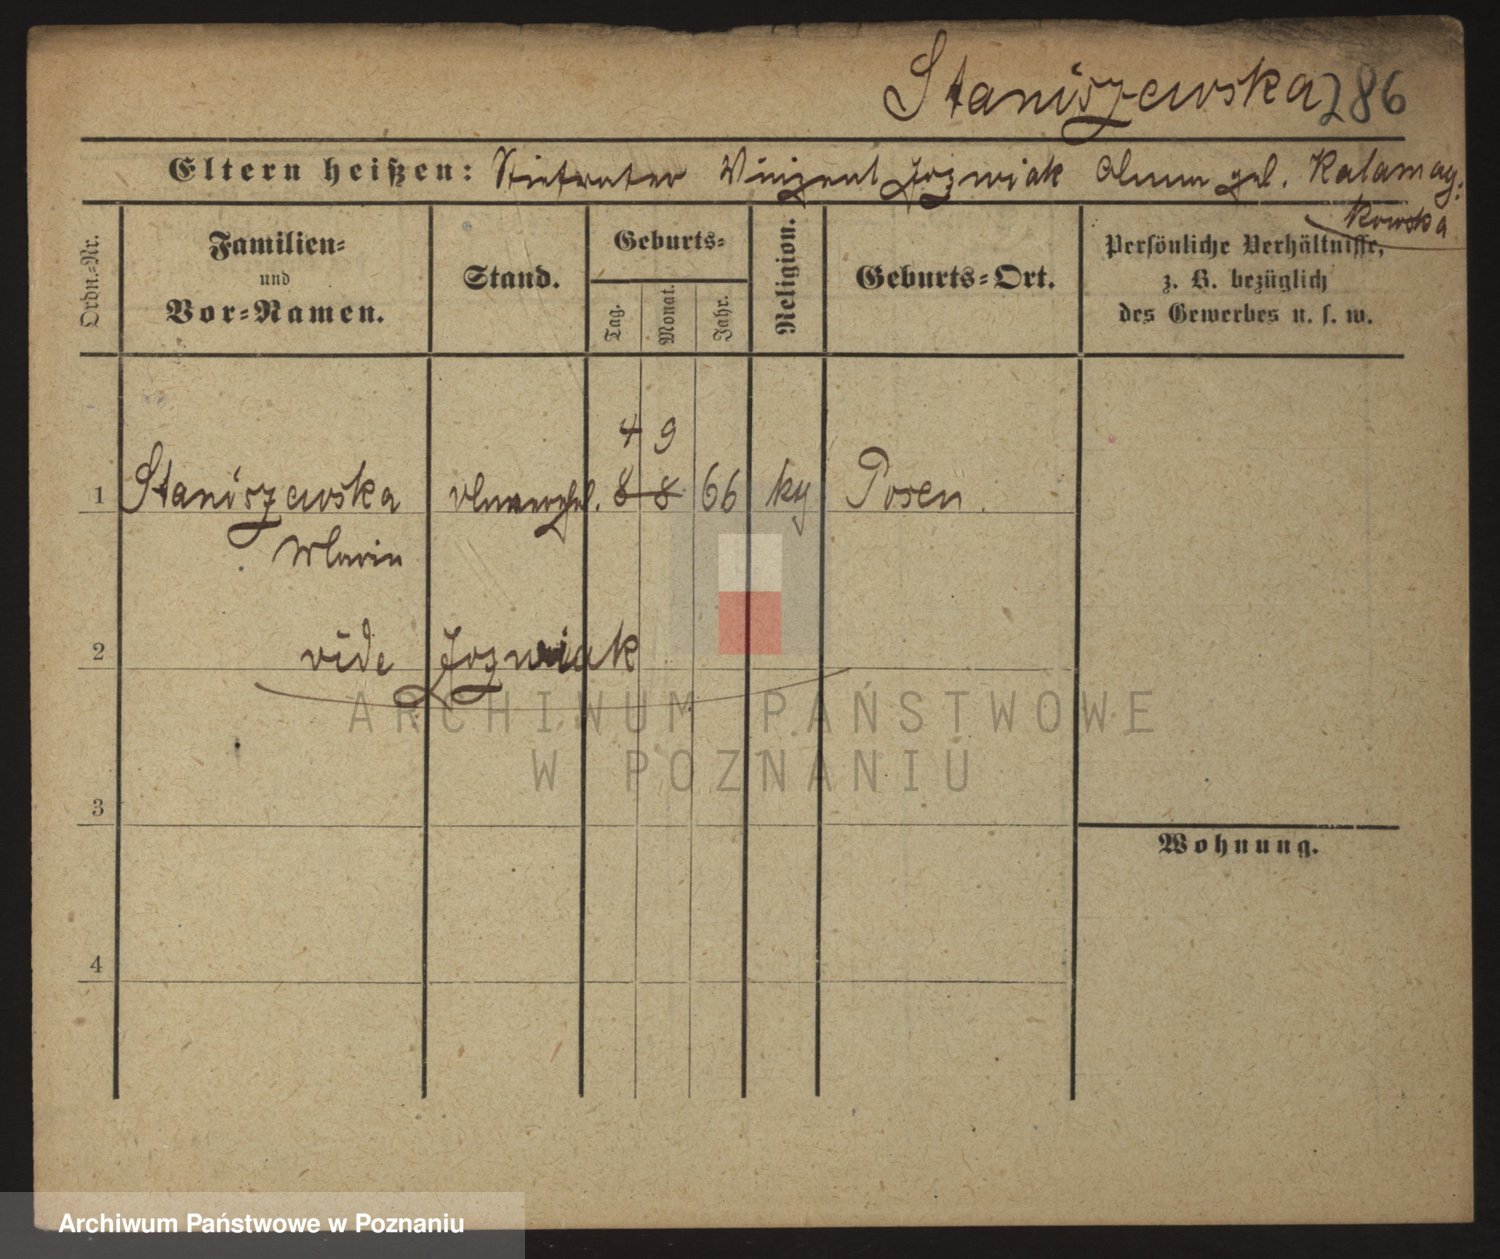 Staniszewska 286
Eltern heißen: Stiefvater Vinzent Jozwiak Anna geb. Kalamaj-
kowska
Ordn.-Nr.
Familien-
und
Vor-Namen.
Stand.
Geburts-
Tag.
Monat.
Jahr.
Religion.
Geburts-Ort.
Persönliche Verhältnisse,
z. B. bezüglich
des Gewerbes u. s. w.
4 9
1 Staniszewska 8 8 66 kg Posen.
Maria
2 vide Jozwiak
3
Wohnung.
4
ARCHIWUM PAŃSTWOWE
W POZNANIU
Archiwum Państwowe w Poznaniu